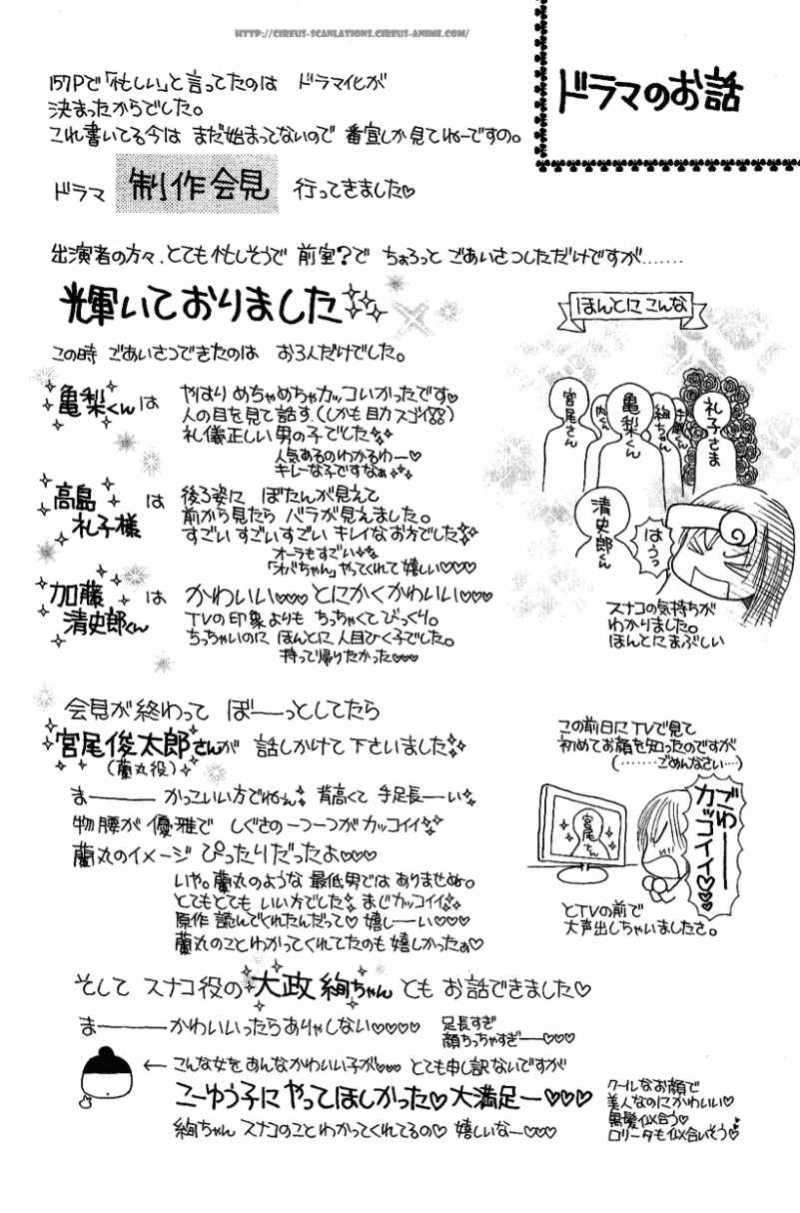 HTTP://CIREUS-SCANLATIONS.CIREUS-ANIME.COM/
ドラマのお話
157Pで「忙しい」と言ってたのは ドラマ化が
決まったからでした。
これ書いてる今は まだ始まってないので 番宣しか見てねーですの。
ドラマ 制作会見 行ってきました♡
出演者の方々、とても忙しそうで 前室?で ちょろっと ごあいさつしただけですが……
輝いておりました
この時 ごあいさつできたのは お3人だけでした。
亀梨くんは
やはり めちゃめちゃカッコいかったです♡
人の目を見て話す(しかも目力スゴイ)
礼儀正しい男の子でした
人気あるのわかるわー♡
キレーな子ですなぁ
高島
礼子様 は
後ろ姿に ぼたんが見えて
前から見たら バラが見えました。
すごい すごい すごい キレイなお方でした
オーラもすごい
「オバちゃん」やってくれて嬉しい♡♡♡
加藤
清史郎くん は
かわいい♡♡♡ とにかくかわいい♡♡♡
TVの印象よりも ちっちゃくてびっくり。
ちっちゃいのに ほんとに 人目ひく子でした。
持って帰りたかった♡♡♡
ほんとに こんな
宮尾さん
内くん
亀梨くん
絢ちゃん
手越くん
礼子さま
清史郎くん
はうっ
スナコの気持ちが
わかりました。
ほんとにまぶしい
会見が終わって ぼーーっとしてたら
宮尾俊太郎さんが 話しかけて下さいました
(蘭丸役)
まーーーー かっこいい方でねぇ 背高くて 手足長ーーい
物腰が 優雅で しぐさの一つ一つが カッコイイ
蘭丸のイメージ ぴったりだったよ♡♡♡
いや。蘭丸のような 最低男では ありませぬ。
とてもとても いい方でした まじカッコイイ
原作 読んでくれたんだって♡ 嬉しーーい♡♡♡
蘭丸のこと わかってくれてたのも 嬉しかったぁ♡
この前日に TVで見て
初めてお顔を知ったのですが
(……ごめんなさい…)
宮尾さん
ブわーーー
カッコイイ♡♡♡
とTVの前で
大声出しちゃいましたさ。
そして スナコ役の 大政 絢ちゃん とも お話できました♡
まーーーー かわいいったらありゃしない♡♡♡♡
足長すぎ
顔ちっちゃすぎーー♡♡♡
← こんな女を あんなかわいい子が♡♡♡ とても申し訳ないですが
こーゆう子に やってほしかった♡ 大満足ー♡♡♡
絢ちゃん スナコのこと わかってくれてるの♡ 嬉しいなー♡♡♡
クールなお顔で
美人なのに かわいい♡
黒髪似合う♡
ロリータも似合いそう♡